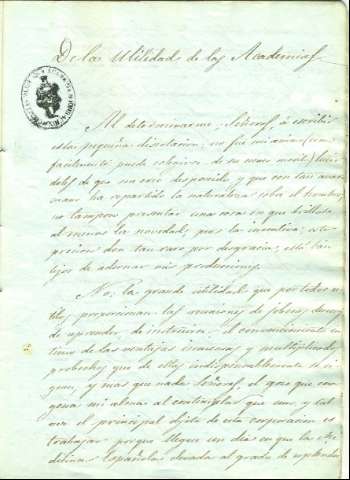 De las Utilidades de las Academias
Al determinarme, Señores, á escribir
esta pequeña disertacion, no fué mi animo (como
facilmente puede colegirse de su mero
de que un ser desposeido y que con tan avara
mano ha repartido la naturaleza sobre el hombre,
no tampoco presentar una cosa en que brillase
al menos la novedad, pues la inventiva,
precioso don tan raro por desgracia, está tan
lejos de adornar mis producciones.
No, la grande utilidad que por todos
proporcionan las reuniones de jóvenes deseosos
de aprender, de instruirse; el convencimiento
de las ventajas inmensas y multiplicados
probechos que de ellas indispensablemente se si-
guen, y mas que nada Señores, el gozo que
mi alma al contemplar que uno, y tal
vez el principal objeto de esta corporacion es
trabajar porque llegue un dia en que la Me-
dicina Española elevada al grado de esplendor